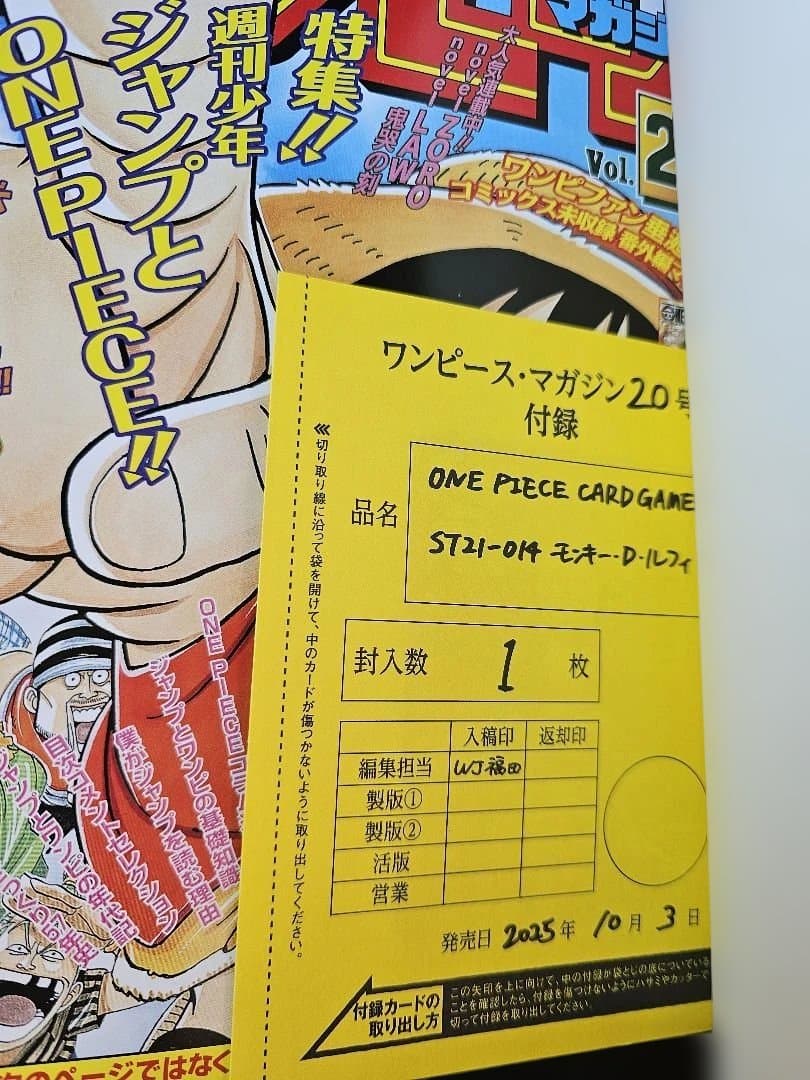 マガジ
特集!!
週刊少年
ジャンプと
ONE PIECE!!
大人気連載中!!
novel ZORO
novel LAW
鬼哭の刻
Vol. 2
ワンピファン
コミックス未収録 番外編マ
ワンピース・マガジン20号
付録
品名
ONE PIECE CARD GAME
ST21-014 モンキー・D・ルフィ
封入数 1 枚
入稿印 返却印
編集担当 WJ福田
製版①
製版②
活版
営業
発売日 2025年 10月 3日
≪切り取り線に沿って袋を開けて、中のカードが傷つかないように取り出してください。
付録カードの
取り出し方
この矢印を上に向けて、中の付録が袋とじの底についている
ことを確認したら、付録を傷つけないようにハサミやカッターで
切って付録を取り出してください。
ONE PIECE
ジャンプとワンピの基礎知識
僕がジャンプを読む理由
目次コメントセレクション
ジャンプとワンピの年代記
次のページではなく